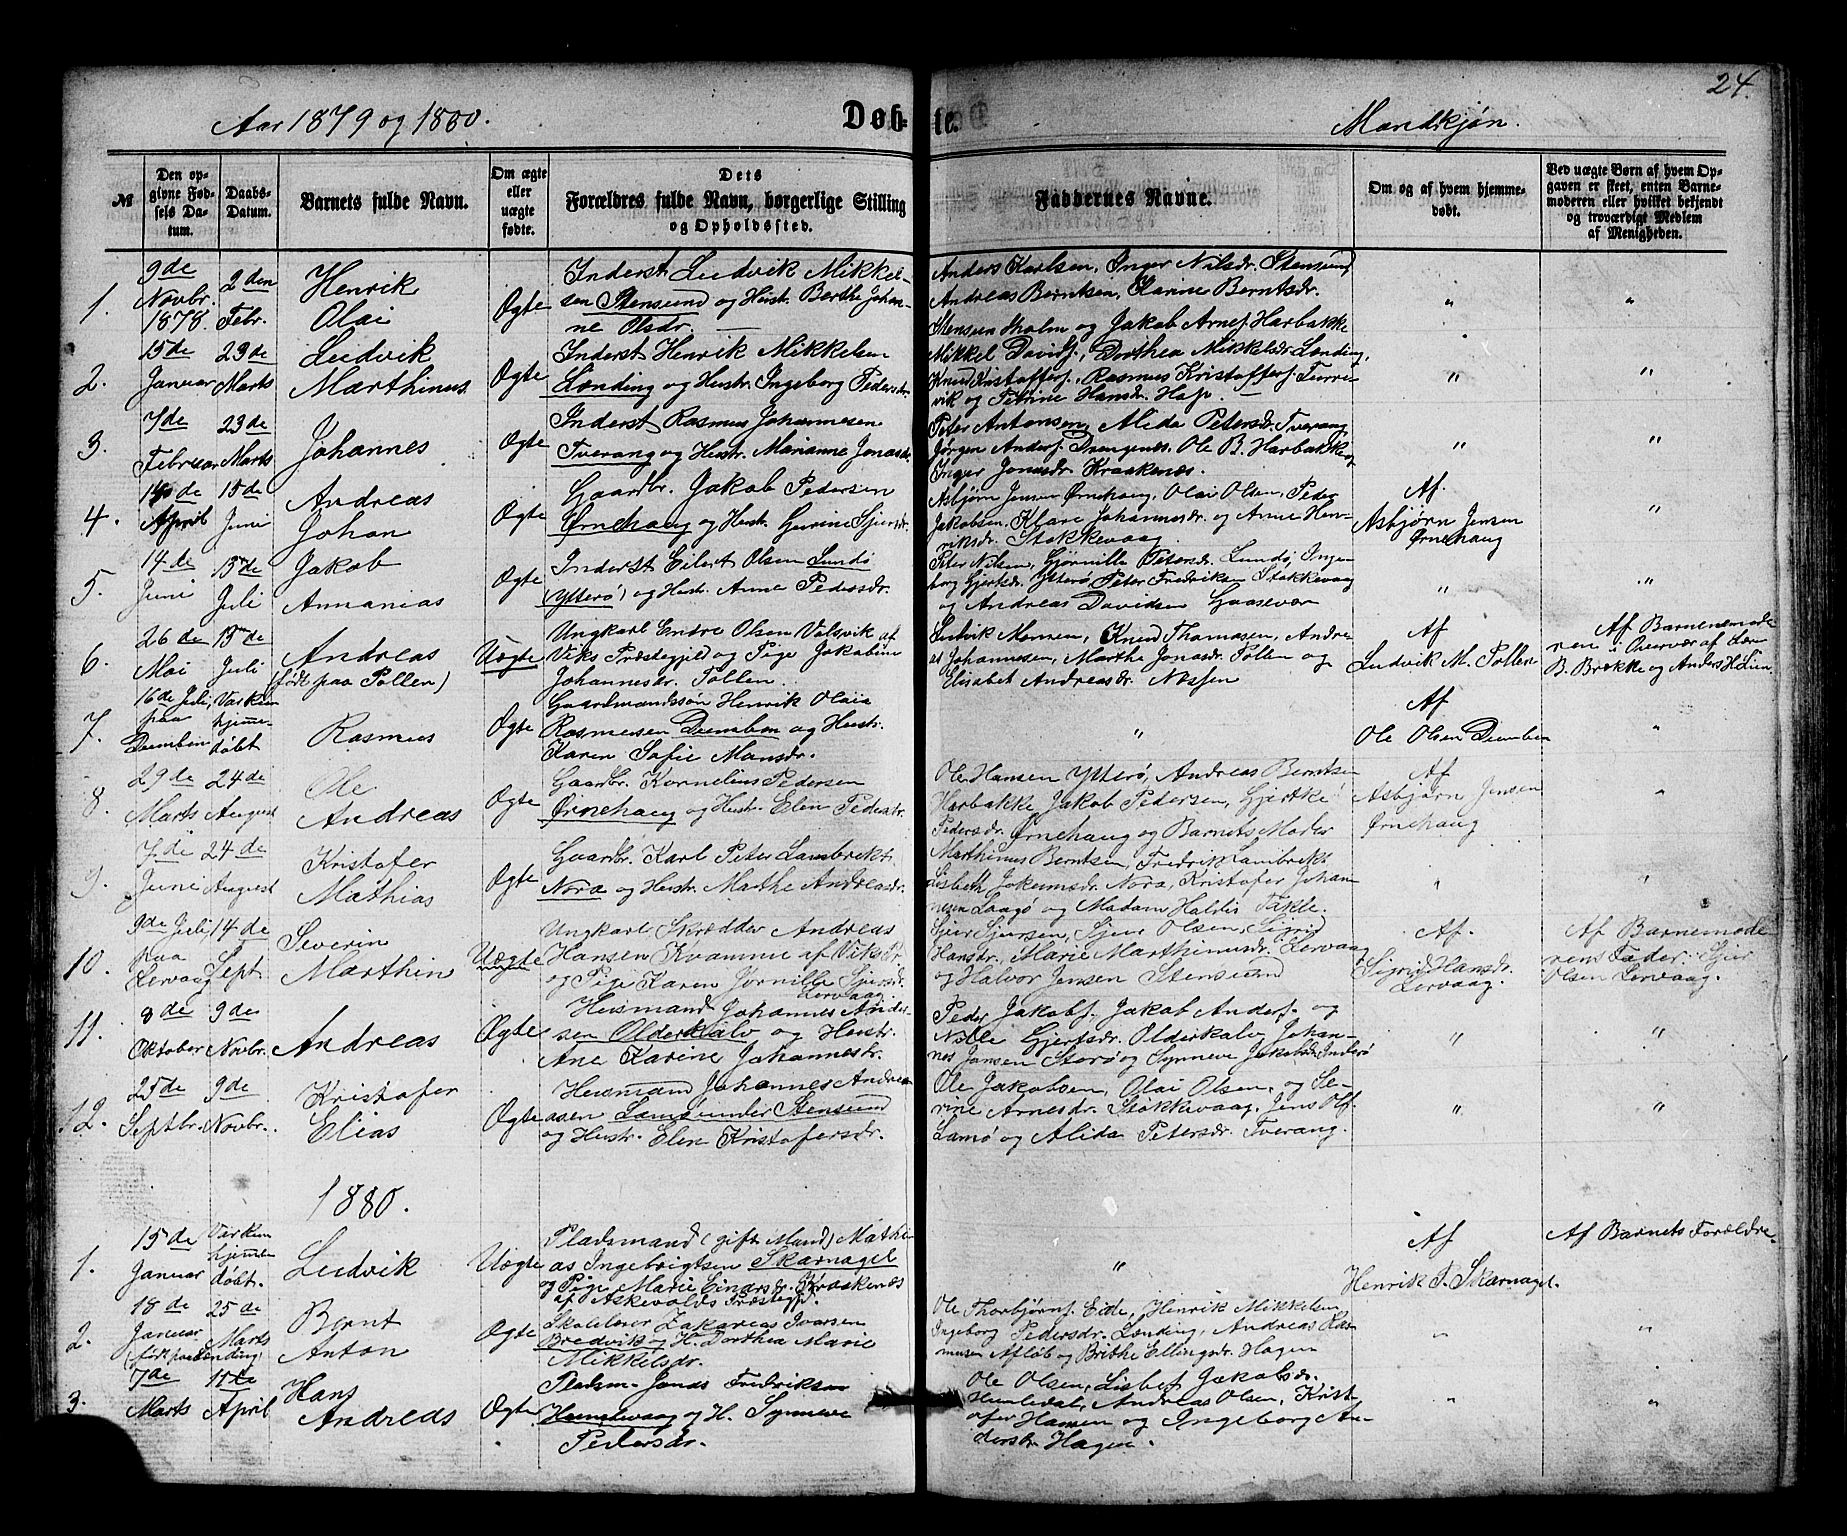 24.
Aar 1879 og 1880.
Døb-
te.
Mandkjøn.
№
Den op-
givne Fød-
sels Da-
tum.
Daabs-
Datum.
Barnets fulde Navn.
Om ægte
eller
uægte
fødte.
Dets
Forældres fulde Navn, borgerlige Stilling
og Opholdssted.
Faddernes Navne.
Om og af hvem hjemme-
døbt.
Ved uægte Børn af hvem Op-
gaven er skeet, enten Barne-
moderen eller hvilket bekjendt
og troværdigt Medlem
af Menigheden.
1.
9de
Novbr.
1878.
2den
Febr.
Henrik
Olai
Ægte
Inderst Ludvik Mikkel-
sen Stensund og Hustr. Berthe Johan-
ne Olsdr.
Anders Karlsen, Inger Nilsdr. Stensund,
Andreas Berntsen, Karine Berntsdr.
Stensundholm og Jakob Arnes. Harbakke
"
"
2.
15de
Januar
23de
Marts
Ludvik
Marthinus
Ægte
Inderst Henrik Mikkelsen
Lænding og Hustr. Ingeborg Pedersdr.
Mikkel Davids., Dorthea Mikkelsdr. Lænding,
Knud Kristoffers., Rasmus Kristoffers.
vik og Petrine Hansdr.
"
"
3.
7de
Februar
23de
Marts
Johannes
Ægte
Inderst Rasmus Johannesen
Tverang og Hustr. Marianne Jonasdr.
Peter Antonsen, Alida Petersdr. Tverang
Jørgen Anders. Drengenes, Ole B. Harbakke og
Inger Jonasdr. Kraakenes.
"
"
4.
April
15de
Juni
Andreas
Johan
Ægte
Gaardbr. Jakob Pedersen
Ørnehaug og Hustr. Gurine Sjursdr.
Asbjørn Jensen Ørnehaug, Olai Olsen, Peder
Jakobsen, Klare Johannesdr. og Anne Hen-
riksdr. Stokkevaag
Af.
Asbjørn Jensen
Ørnehaug
"
5.
14de
Juni
13de
Juli
Jakob
Annanias
Ægte
Inderst Eilert Olsen Sundø
(Ytterø) og Hustr. Anna Pedersdr.
Peter Nilsen, Gjørnille Petersdr. Sundø, Inge-
borg Gjertsdr. Ytterø, Peter Fredriksen Stokkevaag
og Andreas Davidsen Gaasevær
"
"
6.
26de
Mai
13de
Juli
Andreas
(født paa Pollen)
Uægte
Ungkarl Endre Olsen Valsvik af
Viks Præstegjeld og Pige Jakobine
Johannesdr. Pollen.
Ludvik Monsen, Knud Thomasen, Andre-
as Johannesen, Marthe Jonasdr. Pollen og
Elisabet Andreasdr. Nessen
Af
Ludvik M. Pollen
Af Barnemode
ren i Overvær af Lær-
B. Brekke og Anders
7.
16de Juli,
paa
Dumben
Var kun
hjemme-
døbt
Rasmus
Ægte
Gaardmandssøn Henrik Olais
Rasmussen Dumben og Hustr.
Karen Sofie Monsdr.
"
Af
Ole Olsen Dumben
"
8.
29de
Marts
24de
August
Ole
Andreas
Ægte
Gaardbr. Kornelius Pedersen
Ørnehaug og Hustr. Elen Pedersdr.
Ole Hansen Ytterø, Andreas Berntsen
Harbakke, Jakob Pedersen, Gjertke
Pedersdr. Ørnehaug og Barnets Moder
Af
Asbjørn Jensen
Ørnehaug
"
9.
7de
Juni
24de
August
Kristofer
Mathias
Ægte
Gaardbr. Karl Peter Lambrikts.
Nora og Hustr. Marthe Andreasdr.
Marthinus Berntsen, Fredrik Lambrikts.
Lisbeth Jokumsdr. Nora, Kristofer Johan-
nesen Laagø og Madam Haldis Takle.
"
"
10.
9de Juli,
paa
Lervaag
14de
Sept
Severin
Marthin
Uægte
Ungkarl Skrædder Andreas
Hansen Kvamme af Viks Pr.
og Pige Karen Jornille Sjursdr.
Lervaag.
Sjur Sjursen, Sjur Olsen, Sigrid
Hansdr., Marie Marthinusdr. Lervaag
og Halvor Jensen Stensund
Af.
Sigrid Hansdr.
Lervaag.
Af Barnemode
rens Fader. Sjur
Olsen Lervaag.
11.
8de
Oktober
9de
Novbr.
Andreas
Ægte
Husmand Johannes Ander-
sen Olderkalv og Hustr.
Ane Karine Johannesdr.
Peder Jakobs. Jakob Anders. og
Nille Gjertsdr. Olderkalv, Johan-
nes Jansen Storø og Synneve Jakobsdr. Inderø
"
"
12.
25de
Septbr.
9de
Novbr.
Kristofer
Elias
Ægte
Husmand Johannes Andrea-
asen Lamø under Stensund
og Hustr. Elen Kristofersdr.
Ole Jakobsen, Olai Olsen, og Se-
rine Arnesdr. Stokkevaag, Jens Ols.
Lamø og Alida Petersdr. Tverang.
"
"
1880.
1.
15de
Januar
Var kun
hjemme
døbt.
Ludvik
Uægte
Pladsmand (gift Mand) Mathi-
as Ingebrigtsen Skarnagel
og Pige Marie Einarsdr. Kraakenes
af Askevolds Præstegjd.
"
Af
Henrik P. Skarnagel.
Af Barnets Forældre.
2.
18de
Januar
(født paa Lænding)
25de
Marts
Bernt
Anton
Ægte
Skolelærer Zakarias Ivarsen
Bredvik og H. Dorthea Marie
Mikkelsdr.
Ole Thorbjørns. Eide, Henrik Mikkelsen
Ingeborg Pedersdr. Lænding, Andreas Ras-
musen Afløb og Brithe Ellingsdr. Hagen
"
"
3.
7de
Marts
11te
April
Hans
Andreas
Ægte
Pladsm. Jonas Fredriksen
og H. Synneve
Pedersdr.
Ole Olsen, Lisbet Jakobsdr.
Humledal, Andreas Olsen, Krist-
ofer Hansen og Ingeborg An-
dersdr. Hagen.
"
"